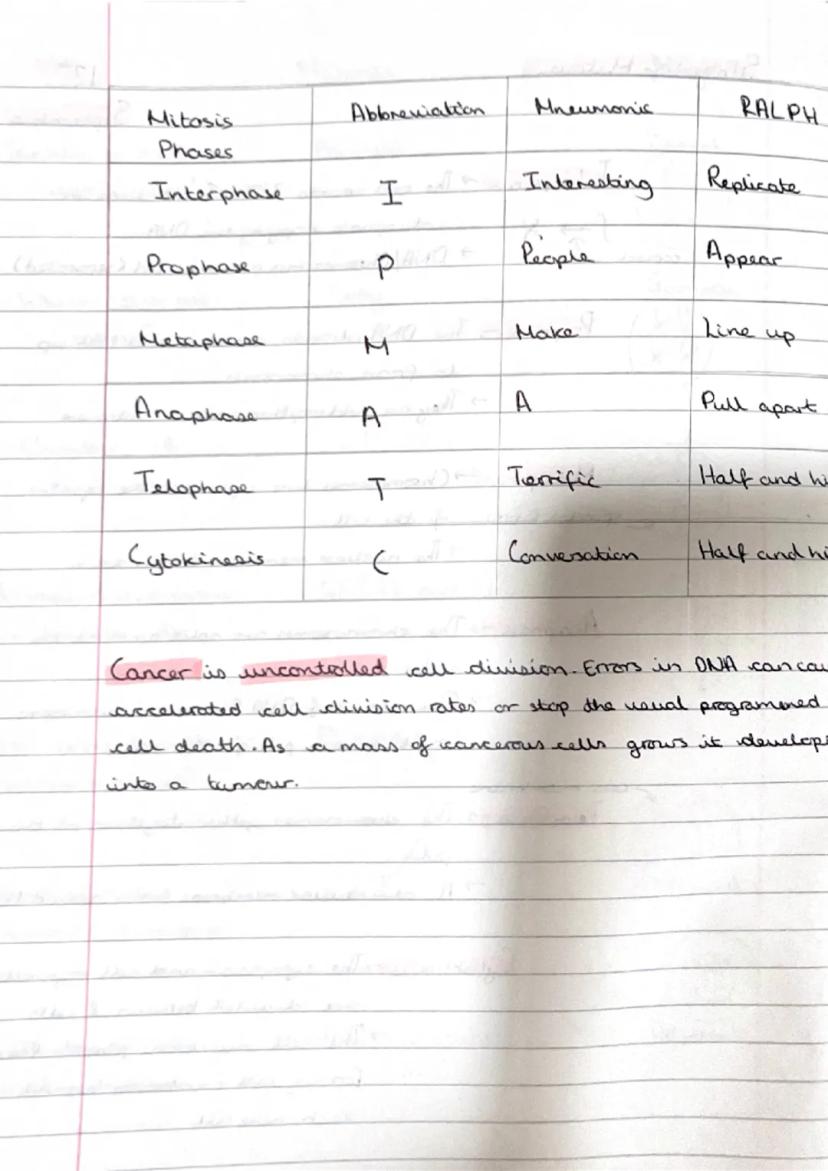 Mitosis Phases Abbreviation Mneumonic RALPH
Interphase I Interesting Replicate
Prophase P People Appear
Metaphase M Make Line up
Anaphase A A Pull apart
Telophase T Terrific Half and
Cytokinesis C Conversation Half and
Cancer is uncontrolled cell division. Errors in DNA can
accelerated cell division rates or stop the usual programmed
cell death. As a mass of cancerous cells grows it
into a tumour.